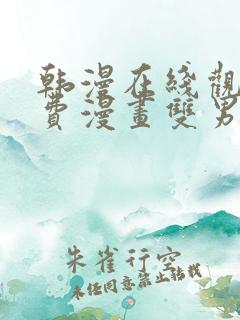 韩漫在线觀
費漫畫雙男
朱雀行空
未经同意禁止转载